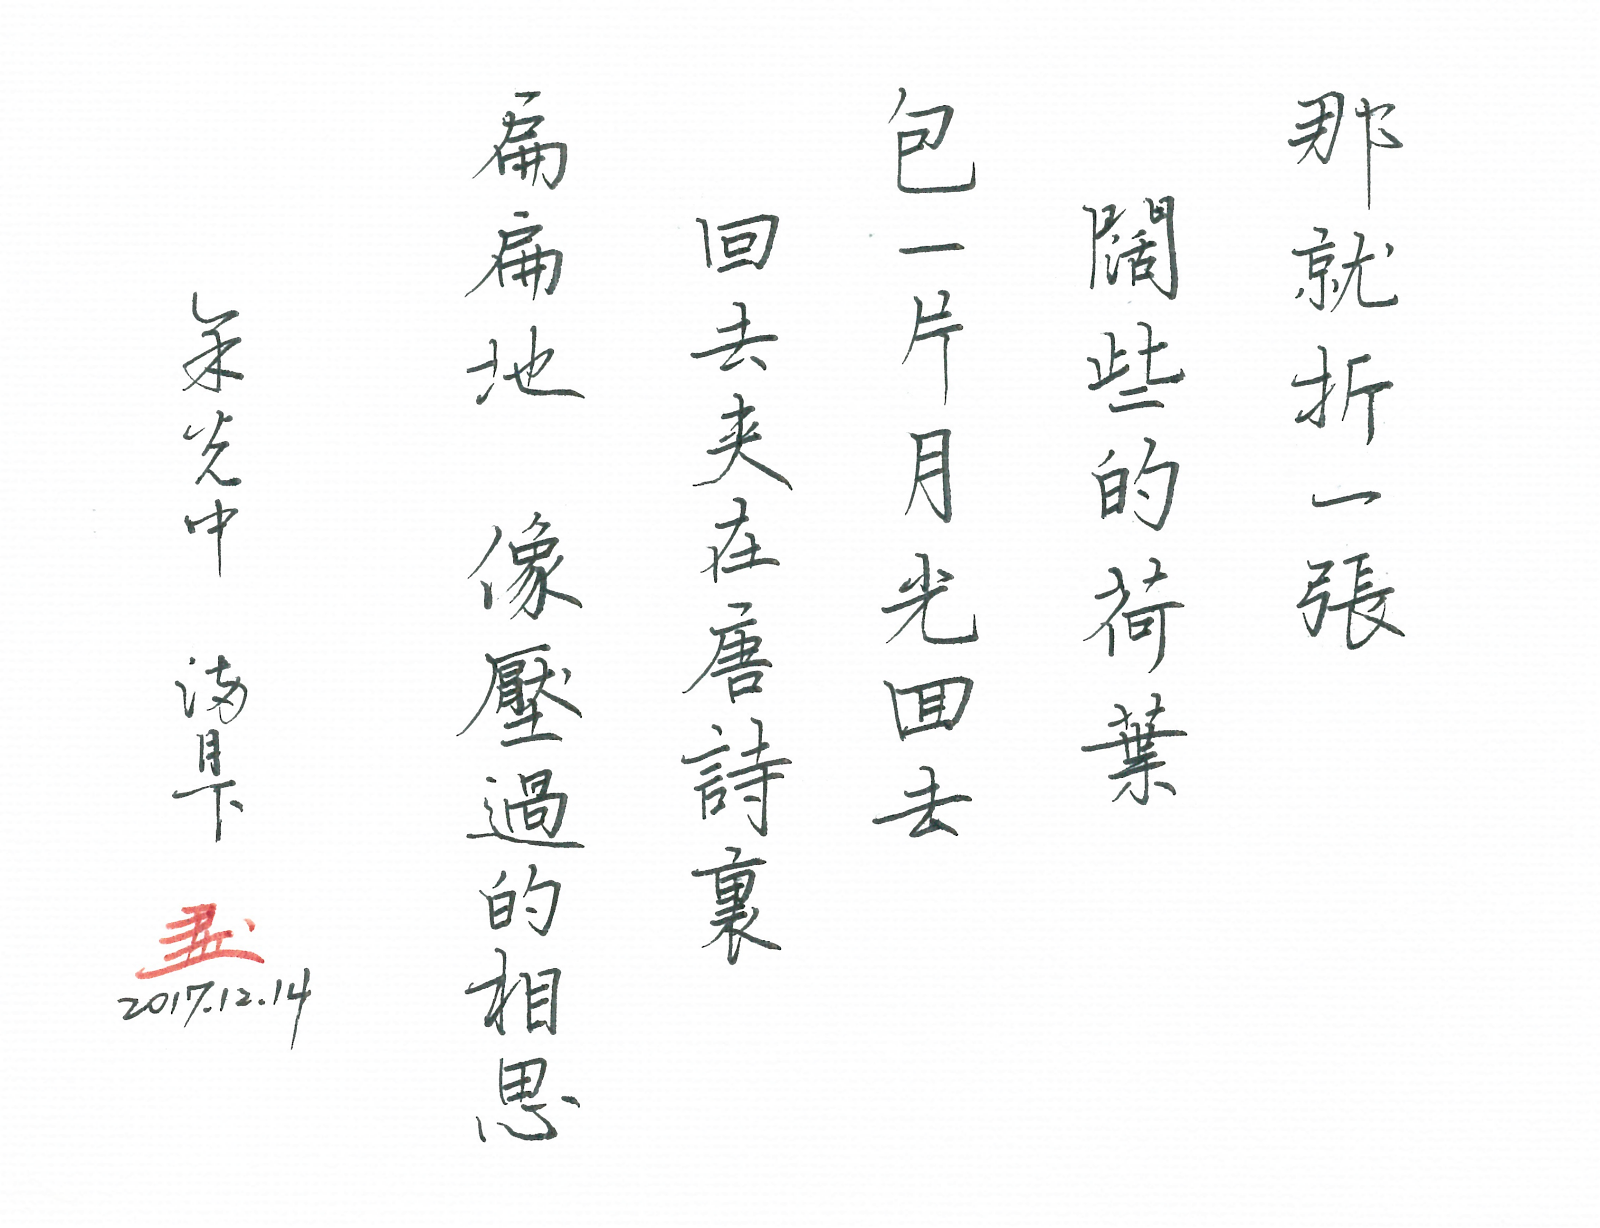 那就折一張
闊些的荷葉
包一片月光回去
回去夾在唐詩裏
扁扁地　像壓過的相思
余光中　滿月下
2017.12.14